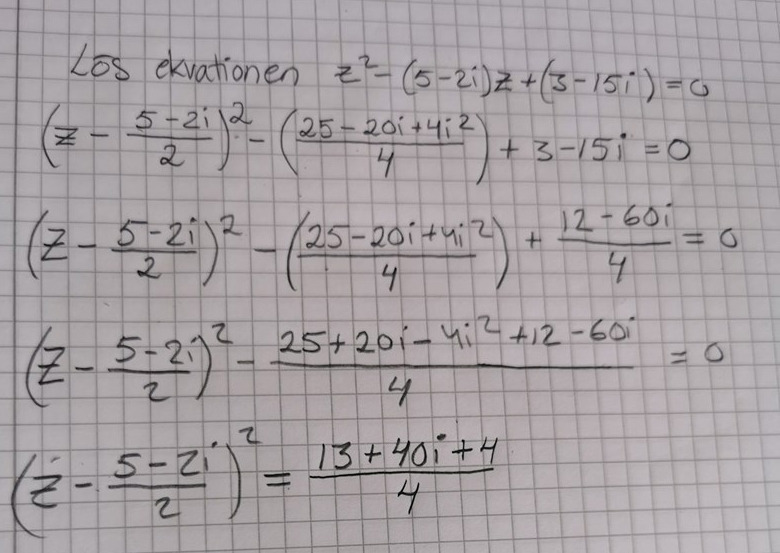 Lös ekvationen z² - (5-2i)z + (3-15i) = 0
(z - \frac{5-2i}{2})² - (\frac{25-20i+4i²}{4}) + 3-15i = 0
(z - \frac{5-2i}{2})² - (\frac{25-20i+4i²}{4}) + \frac{12-60i}{4} = 0
(z - \frac{5-2i}{2})² - \frac{25+20i-4i²+12-60i}{4} = 0
(z - \frac{5-2i}{2})² = \frac{13+40i+4}{4}